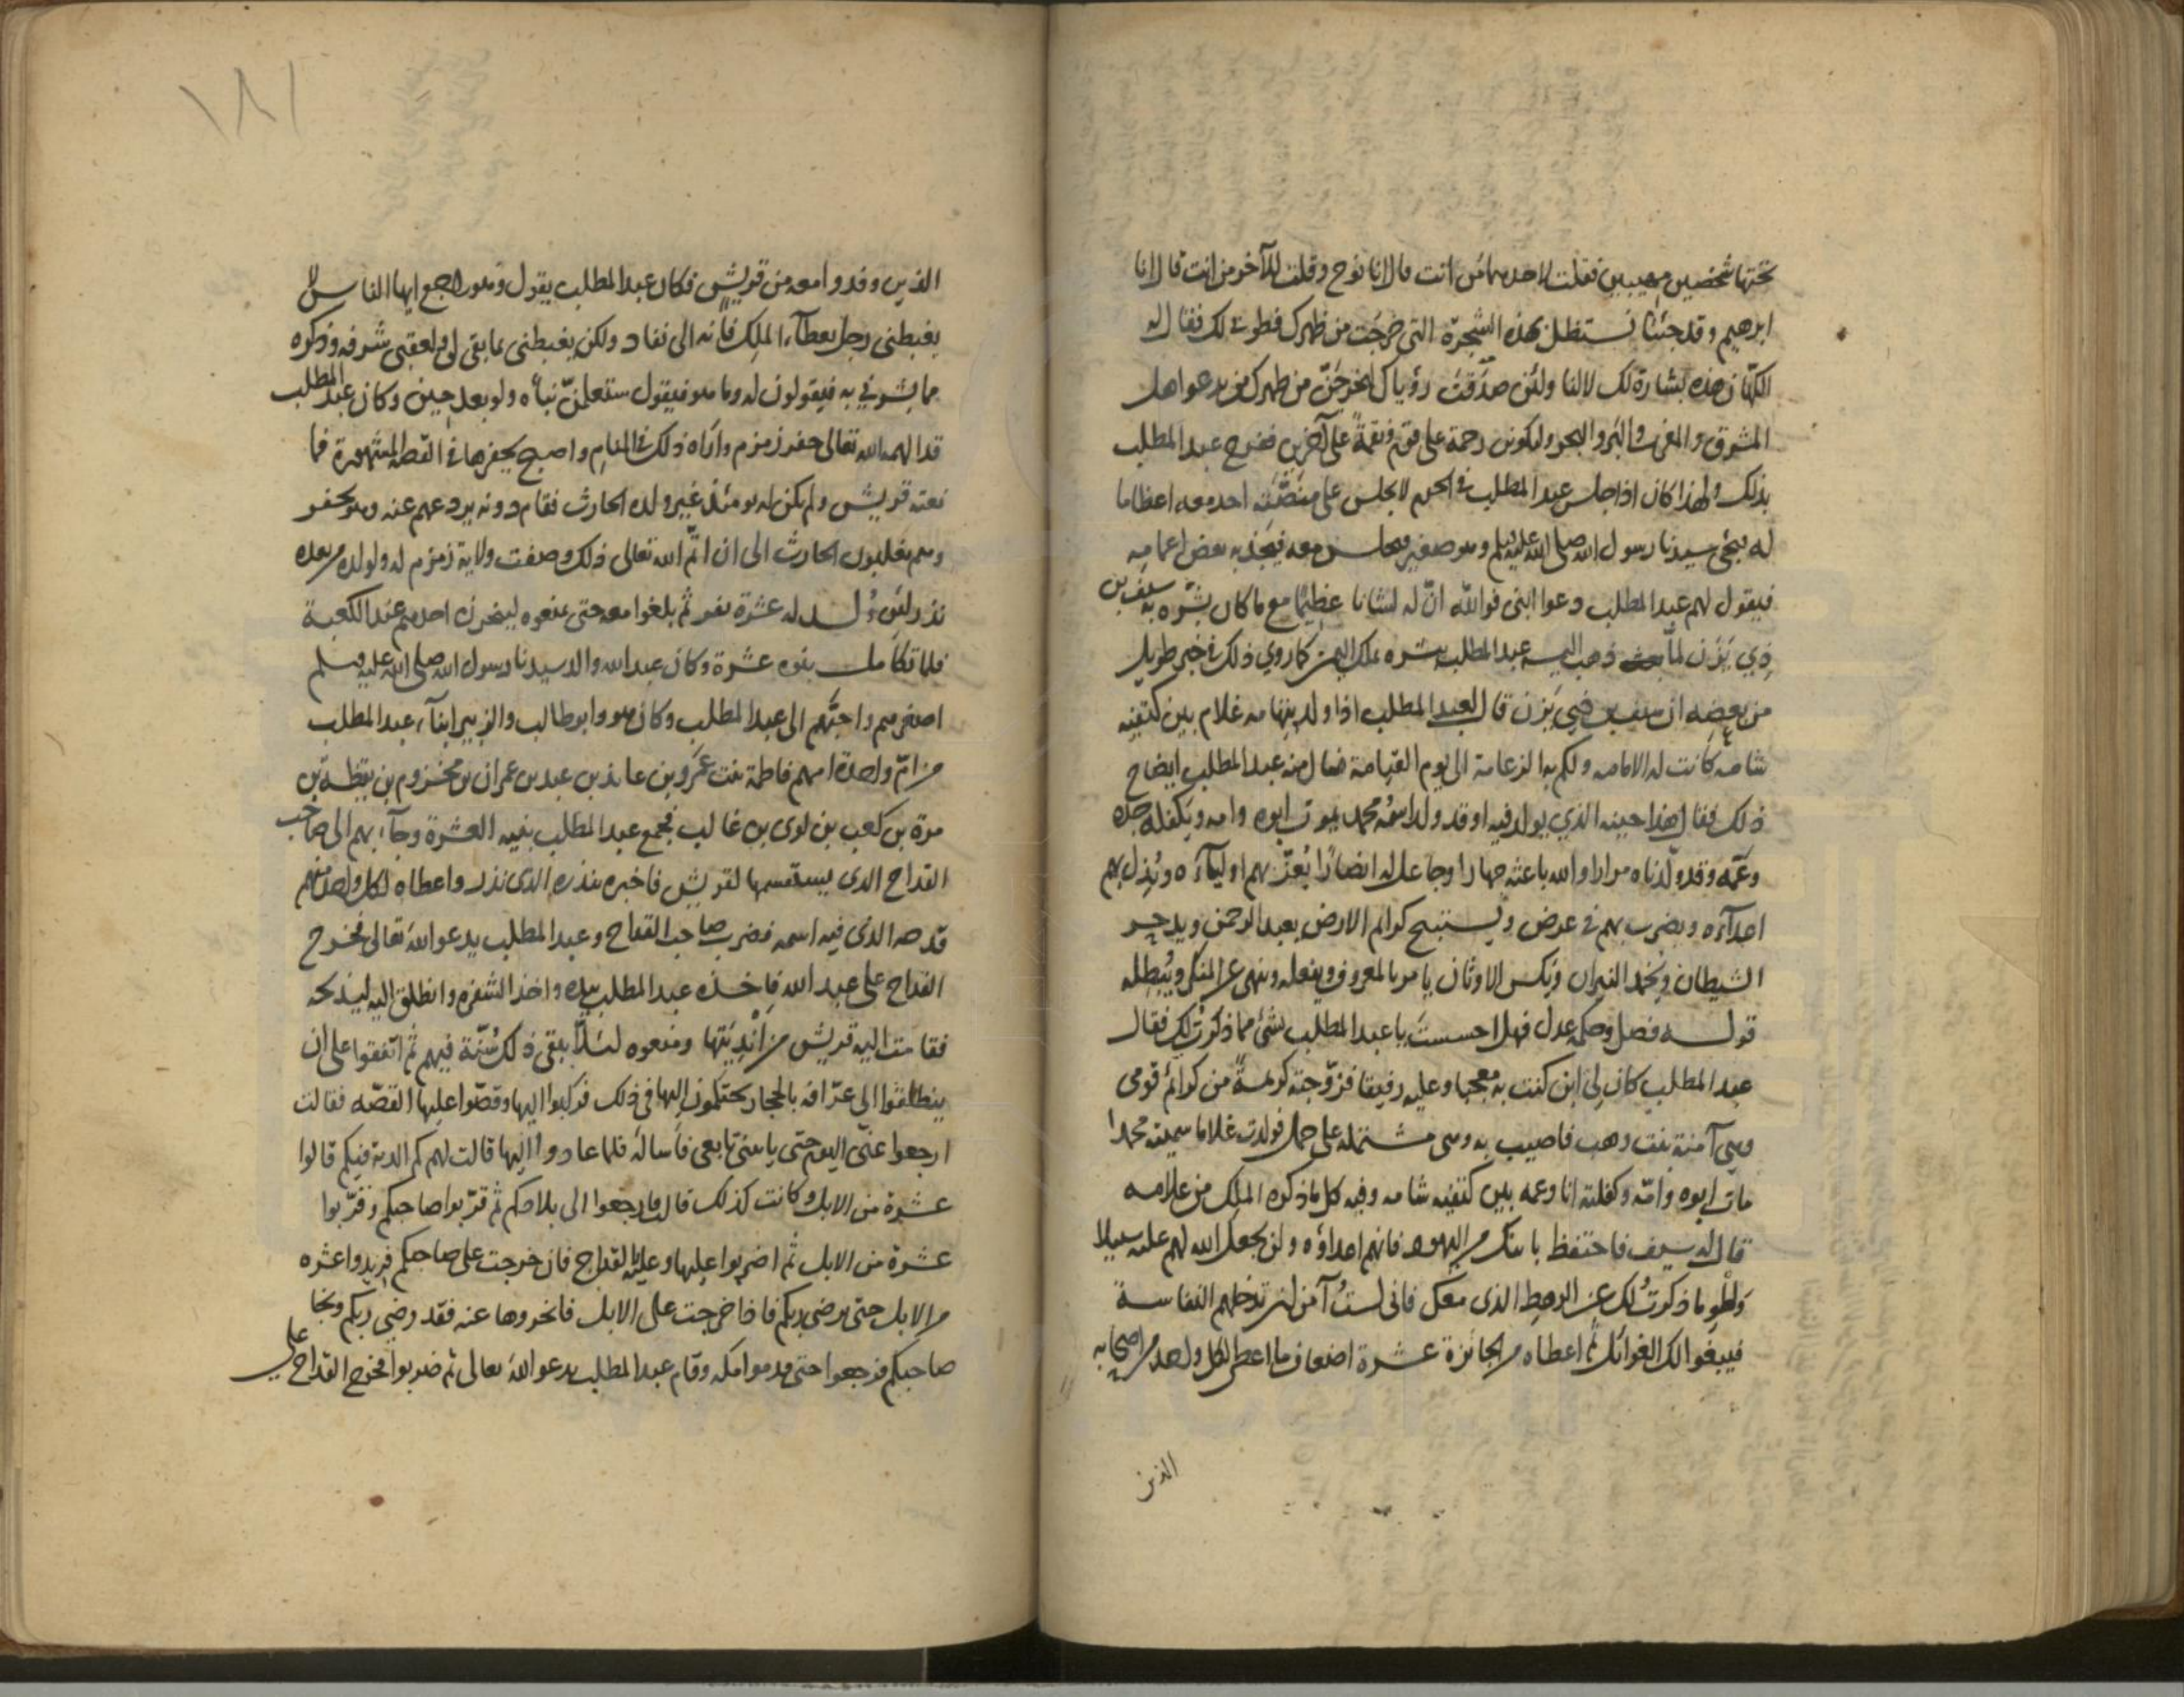 تحتها شخصين مهيبين فقلت لاحدهما من انت قال انا نوح وقلت للآخر من انت قال انا
ابرهيم وقد جئنا نستظل بهذه الشجرة التي خرجت من ظهرك فطوبى لك فقال له
الكهان هذه بشارة لك لا لنا ولئن صدقت رؤياك ليخرجن من ظهرك من يدعو اهل
المشرق والمغرب والبر والبحر وليكونن رحمة على قوم ونقمة على آخرين ففرح عبد المطلب
بذلك ولهذا كان اذا جلس عبد المطلب في الحرم لا يجلس على منصته احد معه اعظاما
له فيجئ سيدنا رسول الله صلى الله عليه وسلم وهو صغير فيجلس معه فيجذبه بعض اعمامه
فيقول لهم عبد المطلب دعوا ابني فوالله ان له لشانا عظيما مع ما كان بشره به سيف بن
ذي يزن لما ذهب اليه عبد المطلب بشره بملك اليمن كما روي ذلك في خبر طويل
من بعضه ان سيف بن ذي يزن قال لعبد المطلب اذا ولد بتهامه غلام بين كتفيه
شامه كانت له الامامه ولكم به الزعامة الى يوم القيامة فسال منه عبد المطلب ايضاح
ذلك فقال هذا حينه الذي يولد فيه او قد ولد اسمه محمد يموت ابوه وامه ويكفله جده
وعمه وقد ولدناه مرارا والله باعثه جهارا وجاعل له انصارا يُعز بهم اولياءه ويُذل بهم
اعداءه ويضرب بهم في عرض ويستبيح كرائم الارض يعبد الرحمن ويدحر
الشيطان ويخمد النيران ويكسر الاوثان يامر بالمعروف ويفعله وينهى عن المنكر ويُبطله
قوله فصل وحكمه عدل فهل احسست يا عبد المطلب بشئ مما ذكرت لك فقال
عبد المطلب كان لي ابن كنت به معجبا وعليه رفيقا فزوجته كريمة من كرائم قومي
وهي آمنة بنت وهب فاصيب به وهي مشتملة على حمل فولدت غلاما سميته محمدا
مات ابوه وامه وكفلته انا وعمه بين كتفيه شامه وفيه كل ما ذكره الملك من علامه
قال له سيف فاحتفظ بابنك من اليهود فانهم اعداؤه ولن يجعل الله لهم عليه سبيلا
واطو ما ذكرتُ لك عن الرهط الذي معك فاني لستُ آمن ان تدخلهم النفاسة
فيبغوا لك الغوائل ثم اعطاه من الجائزة عشرة اضعاف ما اعطى لكل واحد من اصحابه
الذين
١٨١
الذين وفدوا معه من قريش فكان عبد المطلب يقول وهو راجع ايها الناس لا
يغبطني رجل بعطاء الملك فانه الى نفاد ولكن يغبطني بما بقي لي ولعقبي شرفه وذكره
مما بشرني به فيقولون له وما هو فيقول ستعلمن نباه ولو بعد حين وكان عبد المطلب
قد الهمه الله تعالى حفر زمزم واراه ذلك في المنام واصبح يحفرها في القصه المشهورة فما
نعته قريش ولم يكن له يومئذ غير ولده الحارث فقام دونه يردعهم عنه وهو يحفر
وهم يغلبون الحارث الى ان اتم الله تعالى ذلك وصفت ولاية زمزم له ولولده من بعده
نذر لئن وُلد له عشرة نفر ثم بلغوا معه حتى يمنعوه لينحرن احدهم عند الكعبة
فلما تكامل بنوه عشرة وكان عبد الله والد سيدنا رسول الله صلى الله عليه وسلم
اصغرهم واحبهم الى عبد المطلب وكان هو وابو طالب والزبير ابناء عبد المطلب
من ام واحدة امهم فاطمة بنت عمرو بن عايذ بن عبد بن عمران بن مخزوم بن يقظة بن
مرة بن كعب بن لوى بن غالب فجمع عبد المطلب بنيه العشرة وجاء بهم الى صاحب
القداح الذى يستقسم بها لقريش فاخبره بنذره الذى نذر واعطاه لكل واحد منهم
قدحه الذى فيه اسمه فضرب صاحب القداح وعبد المطلب يدعو الله تعالى فخرج
القداح على عبد الله فاخذه عبد المطلب بيده واخذ الشفره وانطلق اليه ليذبحه
فقامت اليه قريش من انديتها ومنعوه لئلا يبقى ذلك سُنّة فيهم ثم اتفقوا على ان
ينطلقوا الى عرافه بالحجاز يحتكمون اليها في ذلك فركبوا اليها وقصوا عليها القصه فقالت
ارجعوا عني اليوم حتى ياتيني تابعي فاساله فلما عادوا اليها قالت لهم كم الدية فيكم قالوا
عشرة من الابل وكانت كذلك قال فارجعوا الى بلادكم ثم قربوا صاحبكم وقربوا
عشرة من الابل ثم اضربوا عليها وعليه القداح فان خرجت على صاحبكم فزيدوا عشره
من الابل حتى يرضى ربكم فاذا خرجت على الابل فانحروها عنه فقد رضي ربكم ونجا
صاحبكم فرجعوا حتى قدموا مكه وقام عبد المطلب يدعو الله تعالى ثم ضربوا فخرج القداح على